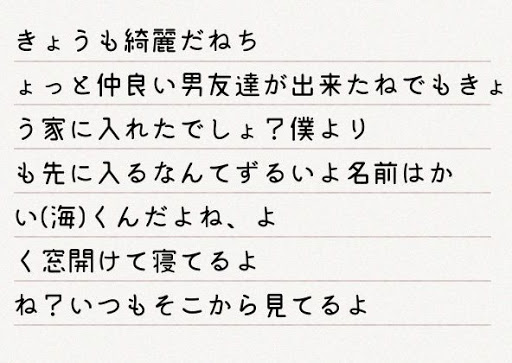 きょうも綺麗だねち
ょっと仲良い男友達が出来たねでもきょ
う家に入れたでしょ？僕より
も先に入るなんてずるいよ名前はか
い(海)くんだよね、よ
く窓開けて寝てるよ
ね？いつもそこから見てるよ